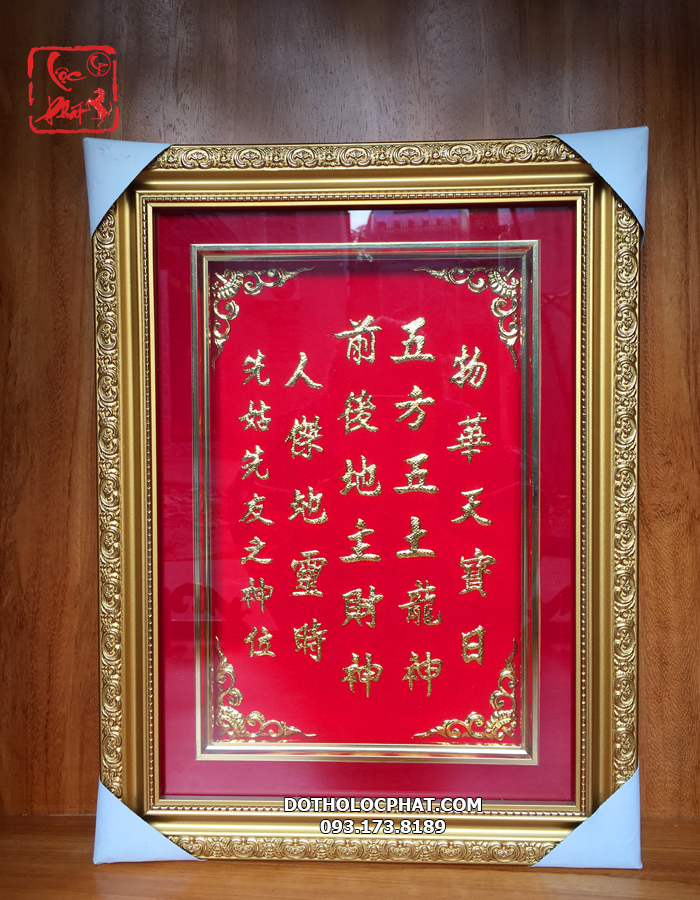 Lộc
Phát
物華天寶日
五方五土龍神
前後地主財神
人傑地靈時
先姑先友之神位
DOTHOLOCPHAT.COM
093.173.8189